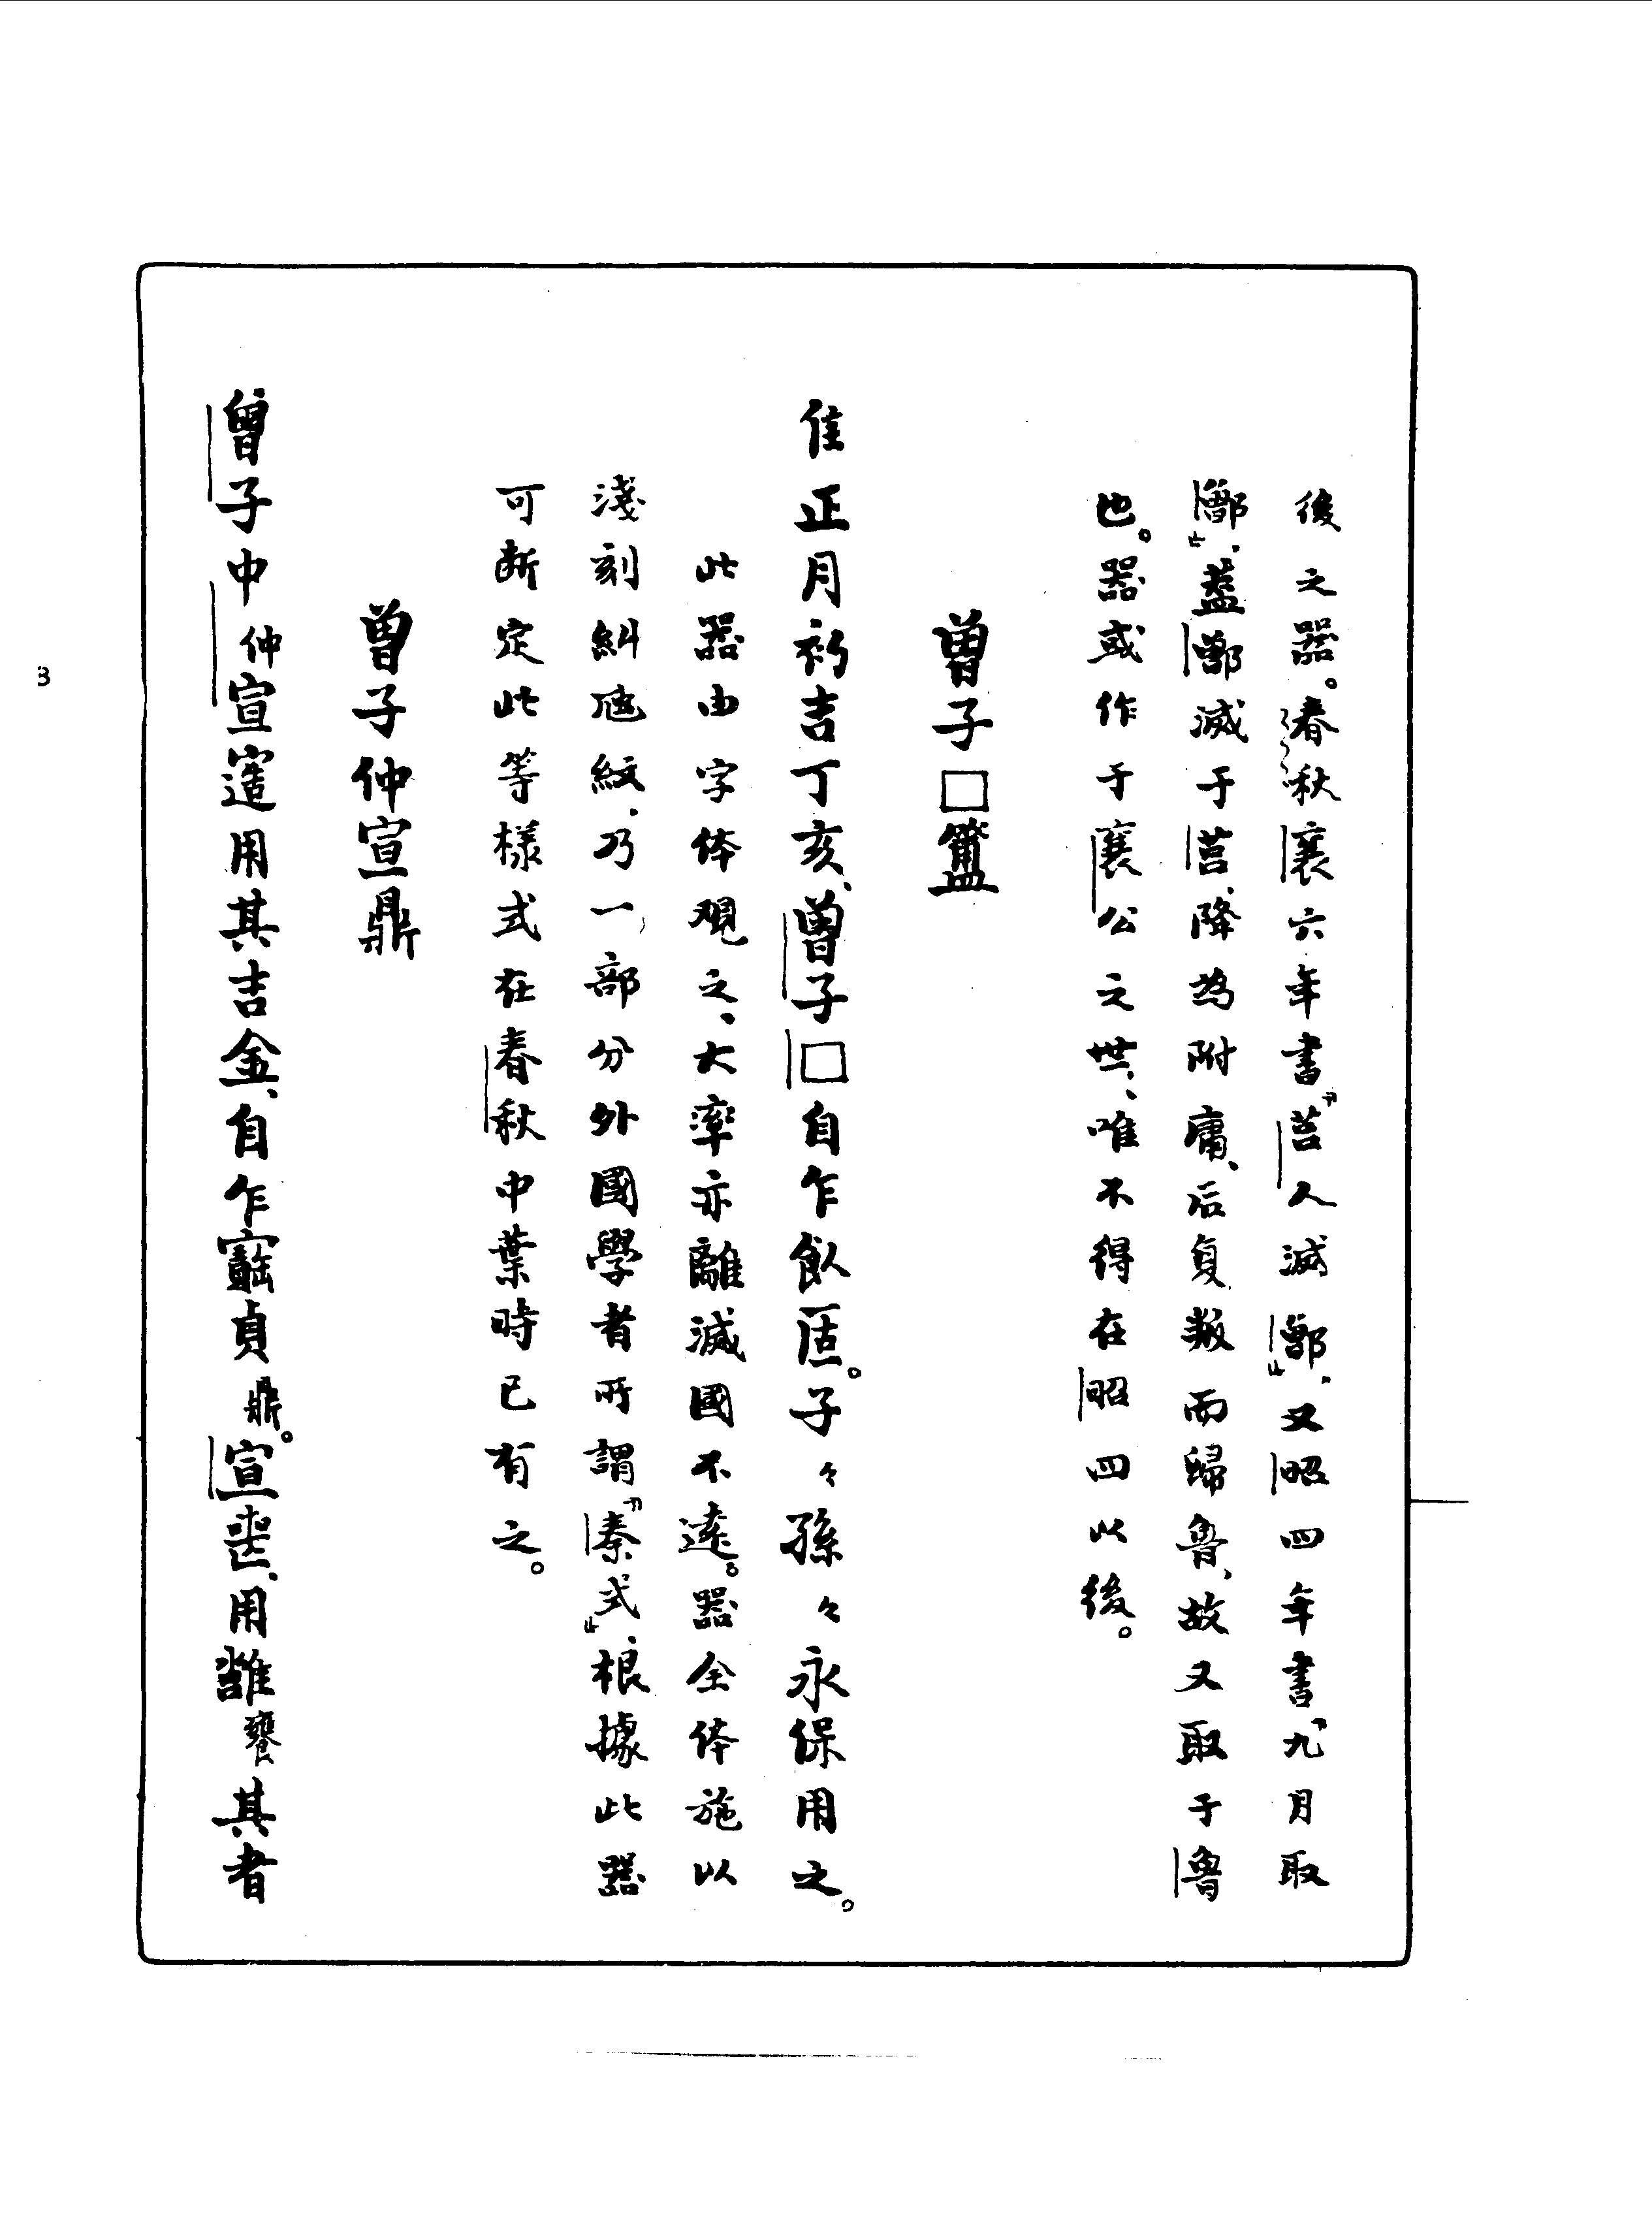 後之器。春秋襄六年書「莒人滅鄫」、又昭四年書「九月取
鄫」、蓋鄫滅于莒、降為附庸、后复叛而歸魯、故又取于魯
也。器或作于襄公之世、唯不得在昭四以後。
曾子□簠
隹正月初吉丁亥、曾子□自乍飤匡。子々孫々永保用之。
此器由字体觀之、大率亦離滅國不遠。器全体施以
淺刻糾虺紋、乃一部分外國學者所謂「秦式」、根據此器
可断定此等樣式在春秋中葉時已有之。
曾子仲宣鼎
曾子中仲宣𡩫用其吉金、自乍寶貞鼎。宣喪、用雝饔其者
3